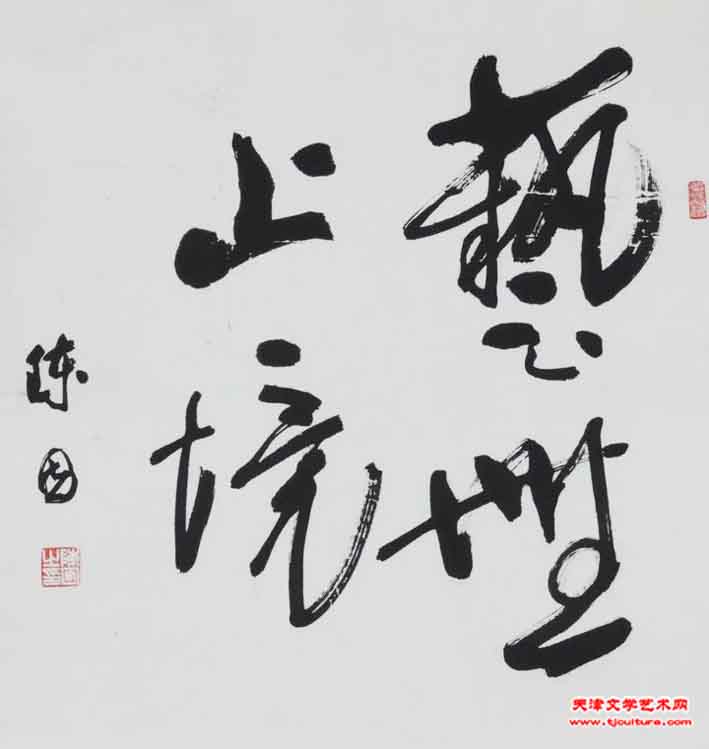 藝無
止境
陈图
天津文学艺术网
www.tjculture.com